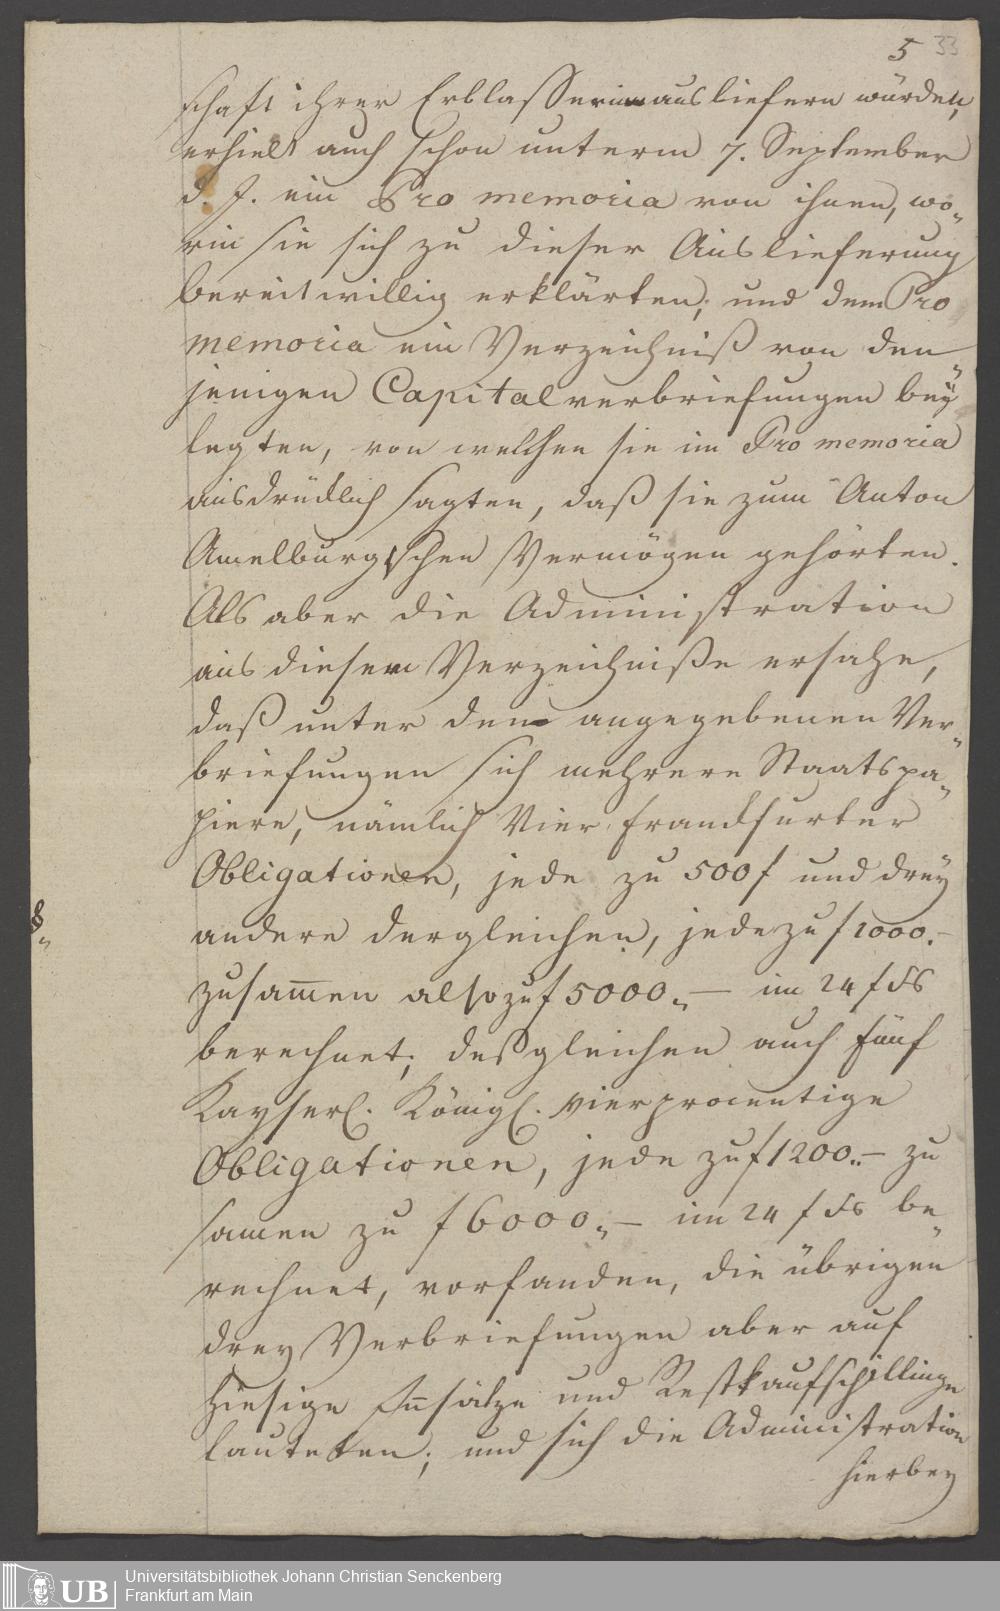 5 33
schaft ihrer Erblasserin ausliefern würden,
erhielt auch schon unterm 7. September
d. J. ein Pro memoria von ihnen, wo-
rin sie sich zu dieser Auslieferung
bereitwillig erklärten; und dem Pro
memoria ein Verzeichniß von den-
jenigen Capitalverbriefungen bey-
legten, von welchen sie im Pro memoria
ausdrücklich sagten, daß sie zum Anton
Amelburgischen Vermögen gehörten.
Als aber die Administration
aus diesem Verzeichniße ersahe,
daß unter den angegebenen Ver-
briefungen sich mehrere Staatspa-
piere, nämlich Vier Franckfurter
Obligationen, jede zu 500 f und drey
andere dergleichen, jede zu f 1000.-
zusam̅en also zu f 5000.- im 24 f Fs
berechnet; deßgleichen auch fünf
Kayserl. Königl. vierprocentige
Obligationen, jede zu f 1200.- zu
samen zu f 6000.- im 24 f Fs be-
rechnet, vorfanden, die übrigen
drey Verbriefungen aber auf
hiesige Insätze und Restkaufschillinge
lauteten; und sich die Administration
hierbey
UB
Universitätsbibliothek Johann Christian Senckenberg
Frankfurt am Main